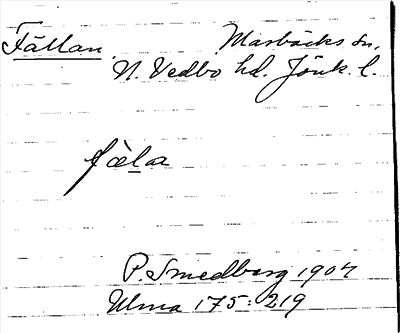 Fällan. Marbäcks sn,
N. Vedbo hd. Jönk. l.
fäla
P Smedberg 1904
Ulma 175:219